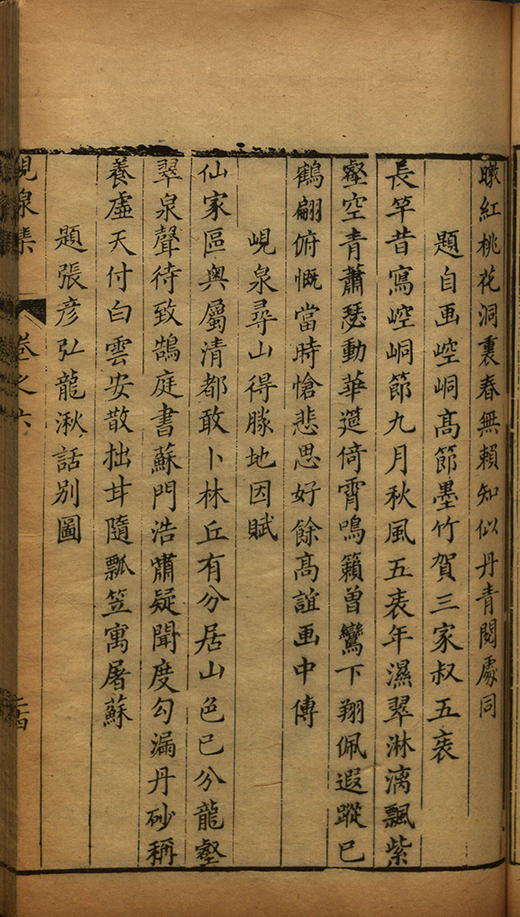 暎紅桃花洞裏春無賴知似丹青閱處同
題自画崆峒髙節墨竹賀三家叔五袠
長竿昔寫崆峒節九月秋風五袠年濕翠淋漓飄紫
壑空青蕭瑟動華筵倚霄鳴籟曾鸞下翔佩遐蹤已
鶴翩俯慨當時愴悲思好餘髙誼画中傳
峴泉尋山得勝地因賦
仙家區奥屬清都敢卜林丘有分居山色已分龍壑
翠泉聲待致鵠庭書蘇門浩嘯疑聞度勾漏丹砂稱
養虛天付白雲安散拙甘隨瓢笠寓屠蘇
題張彦弘龍湫話别圖
峴泉集 卷之六 二十四